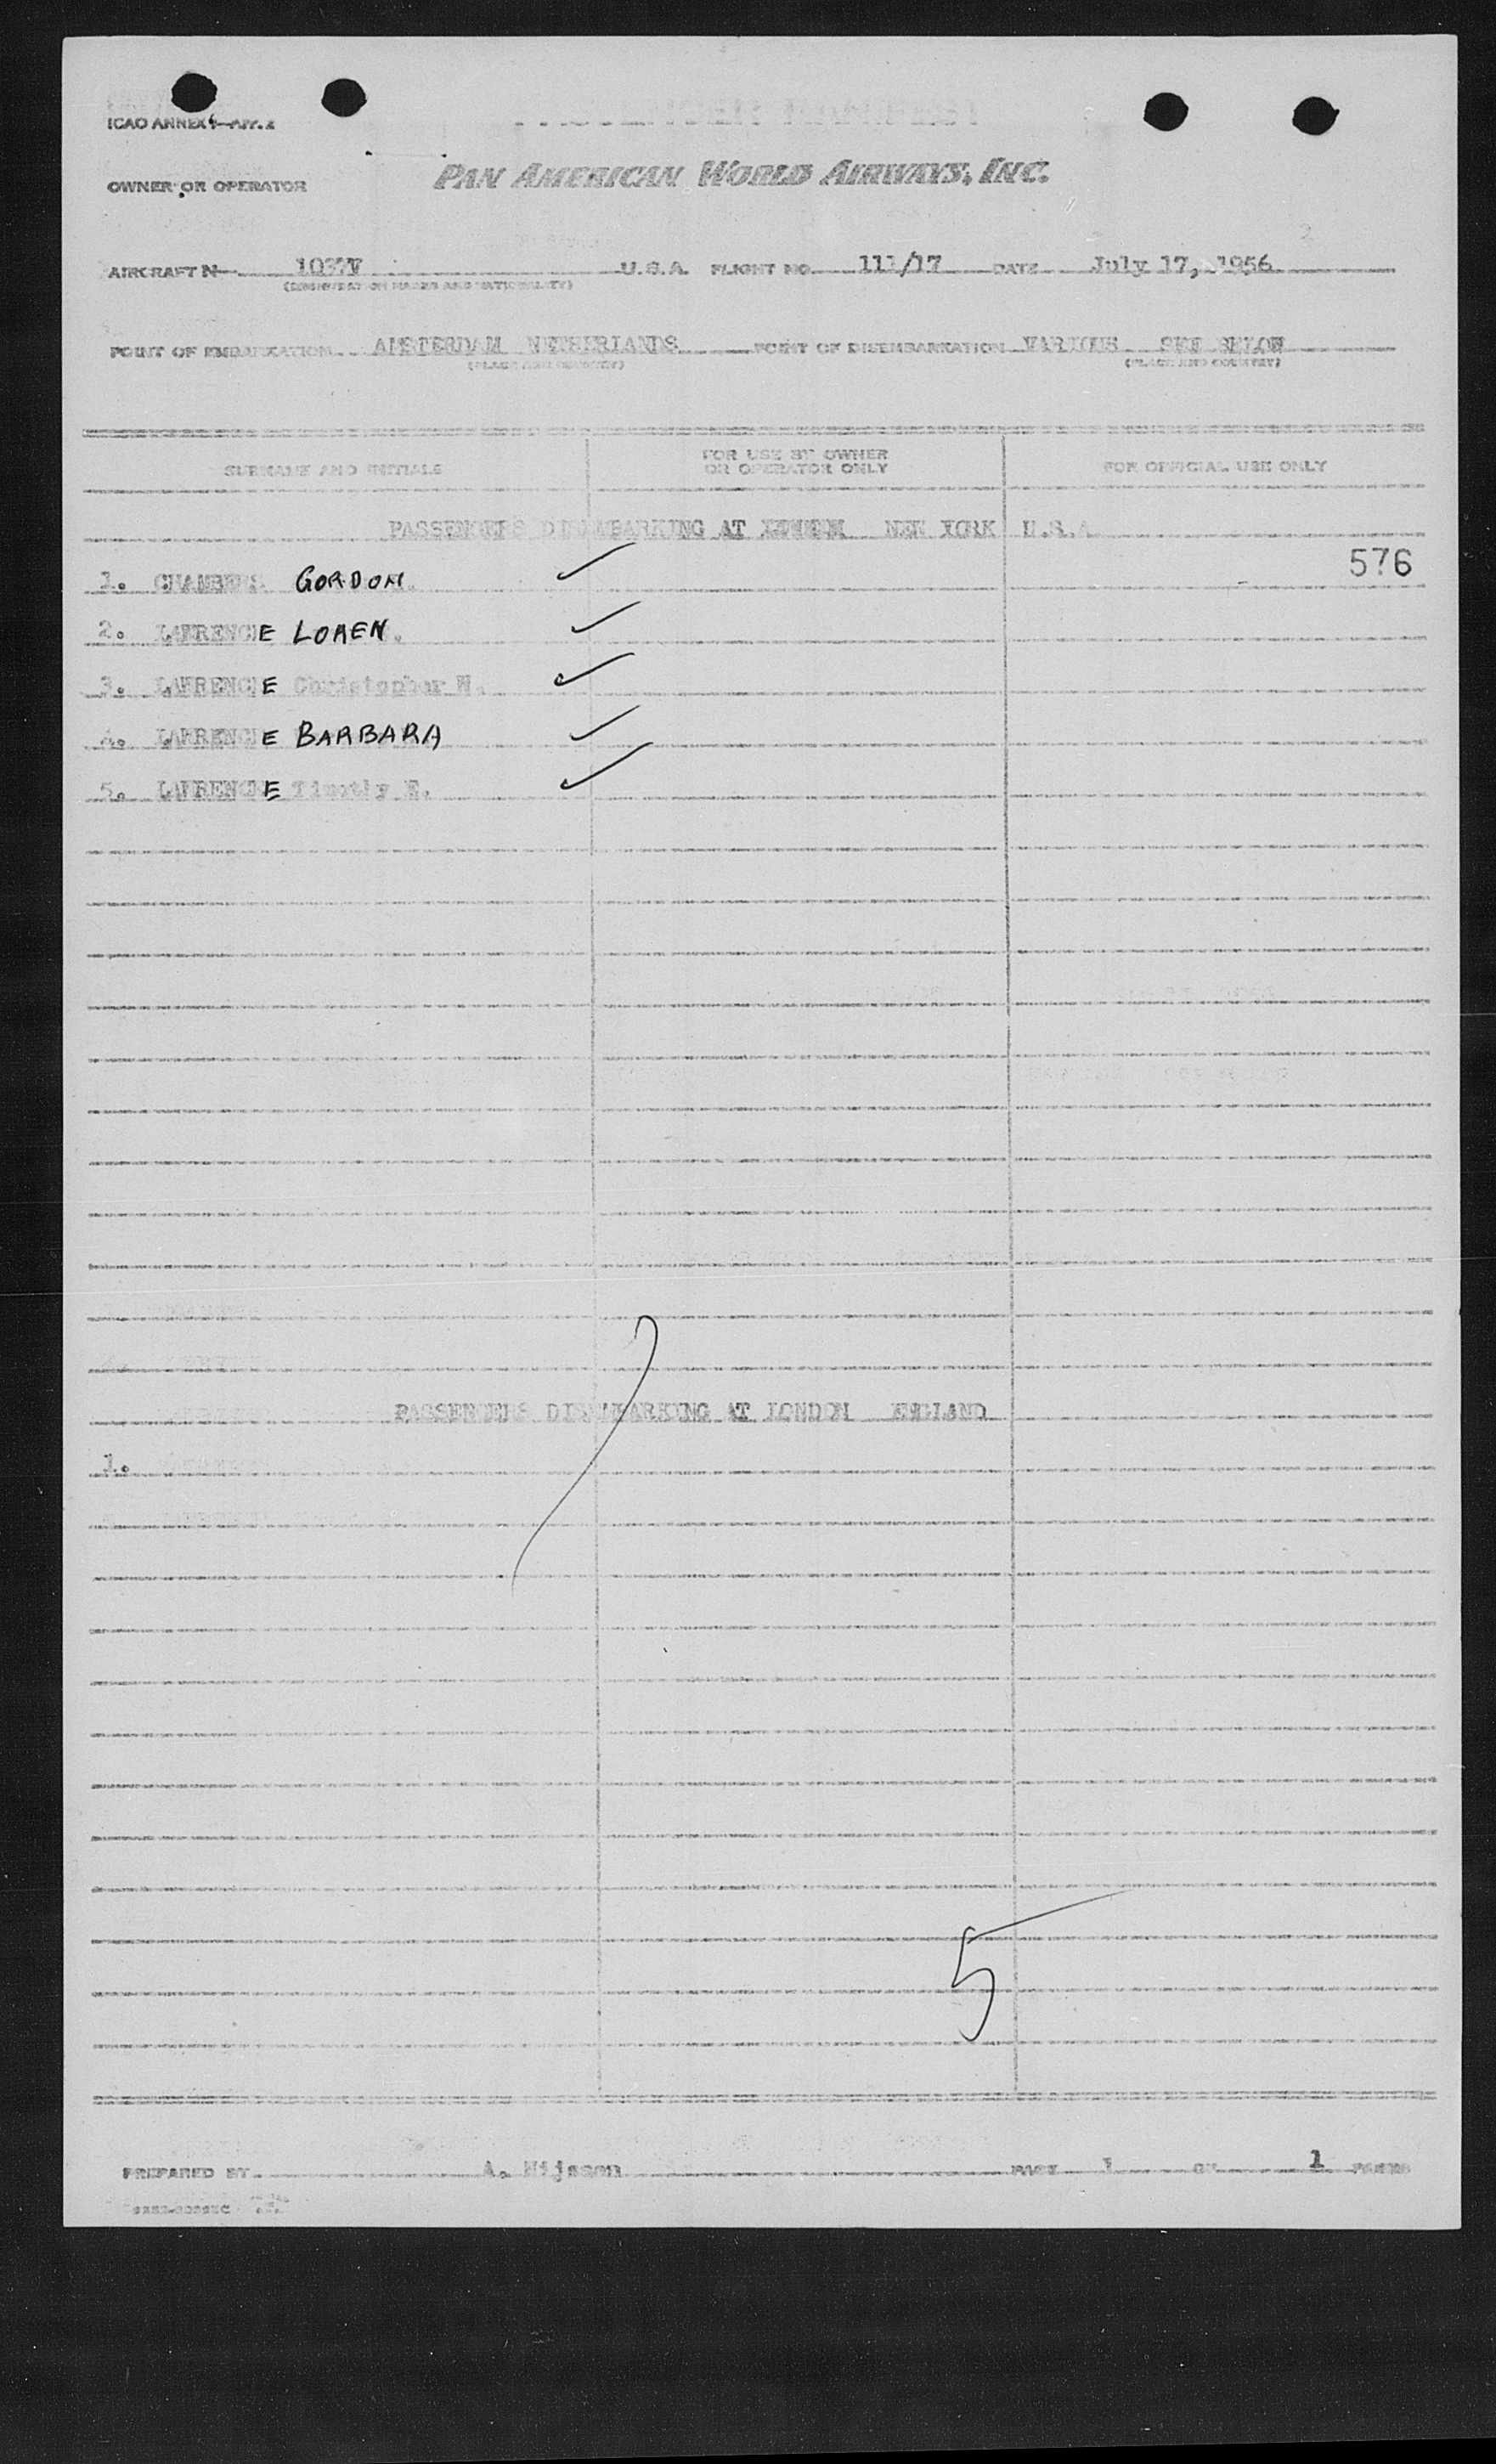 ICAO ANNEX 9—APP. 2
OWNER OR OPERATOR PAN AMERICAN WORLD AIRWAYS, INC.
AIRCRAFT N— 1037V U.S.A. FLIGHT NO. 111/17 DATE July 17, 1956
(REGISTRATION MARKS AND NATIONALITY)
POINT OF EMBARKATION AMSTERDAM NETHERLANDS POINT OF DISEMBARKATION VARIOUS SEE BELOW
(PLACE AND COUNTRY) (PLACE AND COUNTRY)
SURNAME AND INITIALS FOR USE BY OWNER OR OPERATOR ONLY FOR OFFICIAL USE ONLY
PASSENGERS DISEMBARKING AT NEW YORK U.S.A.
576
1. CHAMBERS GORDON.
2. LAWRENCE LOREN.
3. LAWRENCE Christopher W.
4. LAWRENCE BARBARA
5. LAWRENCE Timothy E.
PASSENGERS DISEMBARKING AT LONDON ENGLAND
1.
5
PREPARED BY A. Nijssen PAGE 1 OF 1 PAGES